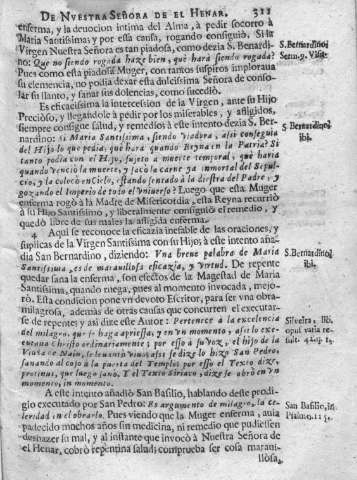 DE NVESTRA SEÑORA DE EL HENAR. 311
enferma, y la deuocion intima del Alma, à pedir socorro à
Maria Santissima; y por esta causa, rogando consiguiò. Si la
Virgen Nuestra Señora es tan piadosa, como dezia S. Bernardi-
no: Que no siendo rogada haze bien, què harà siendo rogada?
Pues como esta piadosa Muger, con tantos suspiros imploraua
su clemencia, no podia dexar esta dulcissima Señora de conso-
lar su llanto, y sanar sus dolencias, como sucediò.
Es eficacissima la intercession de la Virgen, ante su Hijo
Precioso, y llegandole à pedir por los miserables, y afligidos,
siempre consigue salud, y remedio; à este intento dezia S. Ber-
nardino: Si Maria Santissima, siendo viadora, assi conseguia
del Hijo lo que pedia, què harà quando Reyna en la Patria? Si
tanto podia con el Hijo, sujeto a muerte temporal, què harà
quando venciò la muerte, y sacò la carne ya inmortal del Sepul-
cro, y la colocò en Cielo, estando sentado à la diestra del Padre, y
gozando el Imperio de todo el Vniuerso? Luego que esta Muger
enferma rogò à la Madre de Misericordia, esta Reyna recurriò
à su Hijo Santissimo, y liberalmente consiguiò el remedio, y
quedò libre de sus males la afligida enferma.
4 Aqui se reconoce la eficazia inefable de las oraciones, y
suplicas de la Virgen Santissima con su Hijo; à este intento aña-
dia San Bernardino, diziendo: Vna breve palabra de Maria
Santissima, es de marauillosa eficazia, y virtud. De repente
quedar sana la enferma, son efectos de la Magestad de Maria
Santissima, quando ruega, pues al momento invocada, mejo-
rò. Esta condicion pone vn devoto Escritor, para ser vna obra
milagrosa, ademàs de otras causas que concurren el executar-
se de repente; y assi dize este Autor: Pertenece à la excelencia
del milagro, que se haga apriessa, y en vn momento, assi lo exe-
cutaua Christo ordinariamente; por esso à su voz, el hijo de la
Viuda de Naim, se leuantò
sanando al coxo à la puerta del Templo; por esso el Texto dize,
protinus, que luego sanò. Y el Texto Siriaco, dize se obrò en vn
momento, in momento.
A este intento añadiò San Basilio, hablando deste prodi-
gio executado por San Pedro: Es argumento de milagro, la ce-
leridad en el obrarlo. Pues viendo que la Muger enferma, auia
padecido muchos años sin medicina, ni remedio que pudiessen
deshazer su mal, y al instante que invocò à Nuestra Señora de
el Henar, cobrò repentina salud; comprueba ser cosa maraui-
llosa,
S. Bernardino,
S. Bernardino,
ibi.
S. Bernardino,
ibi.
Silveira, lib.
San Basilio, in
Psalmo 115.